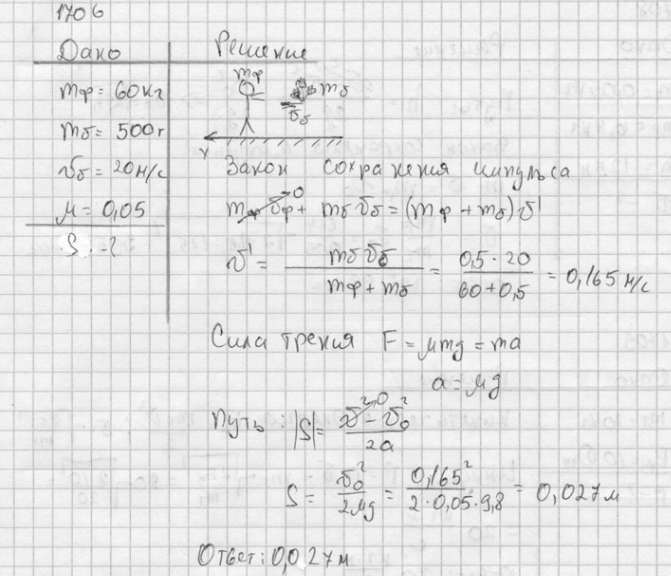 1706
Дано
mф = 60кг
mб = 500г
υб = 20м/с
μ = 0,05
S - ?
Решение
mф
mб
υб
Y
Закон сохранения импульса
mф υф + mб υб = (mф + mб) υ' 0
υ' = mб υб / mф + mб = 0,5 · 20 / 60 + 0,5 = 0,165 м/с
Сила трения F = μmg = ma
a = μg
Путь: |S| = υ² - υ₀² / 2a 0
S = υ₀² / 2μg = 0,165² / 2 · 0,05 · 9,8 = 0,027 м
Ответ: 0,027 м